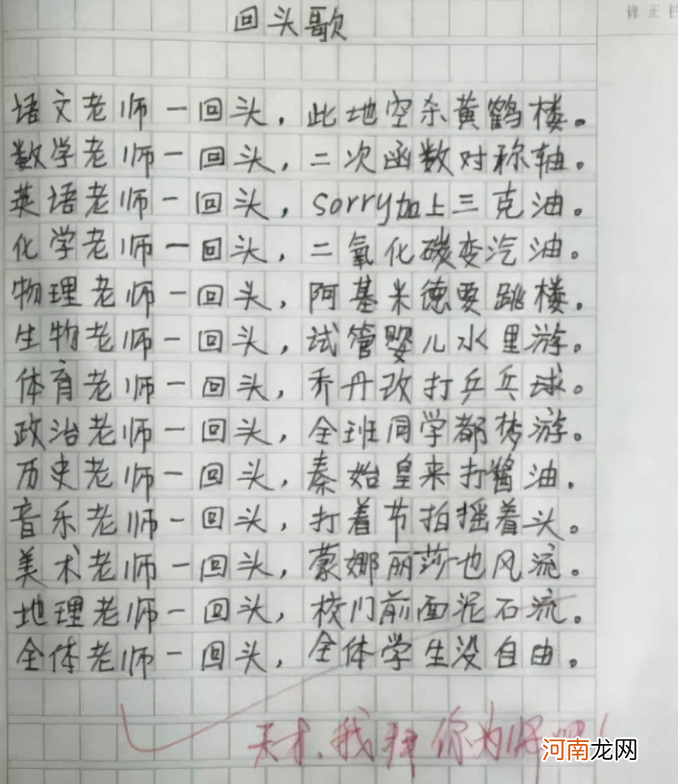 修正栏
回头歌
语文老师一回头，此地空余黄鹤楼。
数学老师一回头，二次函数对称轴。
英语老师一回头，sorry加上三克油。
化学老师一回头，二氧化碳变汽油。
物理老师一回头，阿基米德要跳楼。
生物老师一回头，试管婴儿水里游。
体育老师一回头，乔丹改打乒乓球。
政治老师一回头，全班同学都梦游。
历史老师一回头，秦始皇来打酱油．
音乐老师一回头，打着节拍摇着头。
美术老师一回头，蒙娜丽莎也风流。
地理老师一回头，校门前面泥石流。
全体老师一回头，全体学生没自由。
天才、我拜你为师吧！
河南龙网